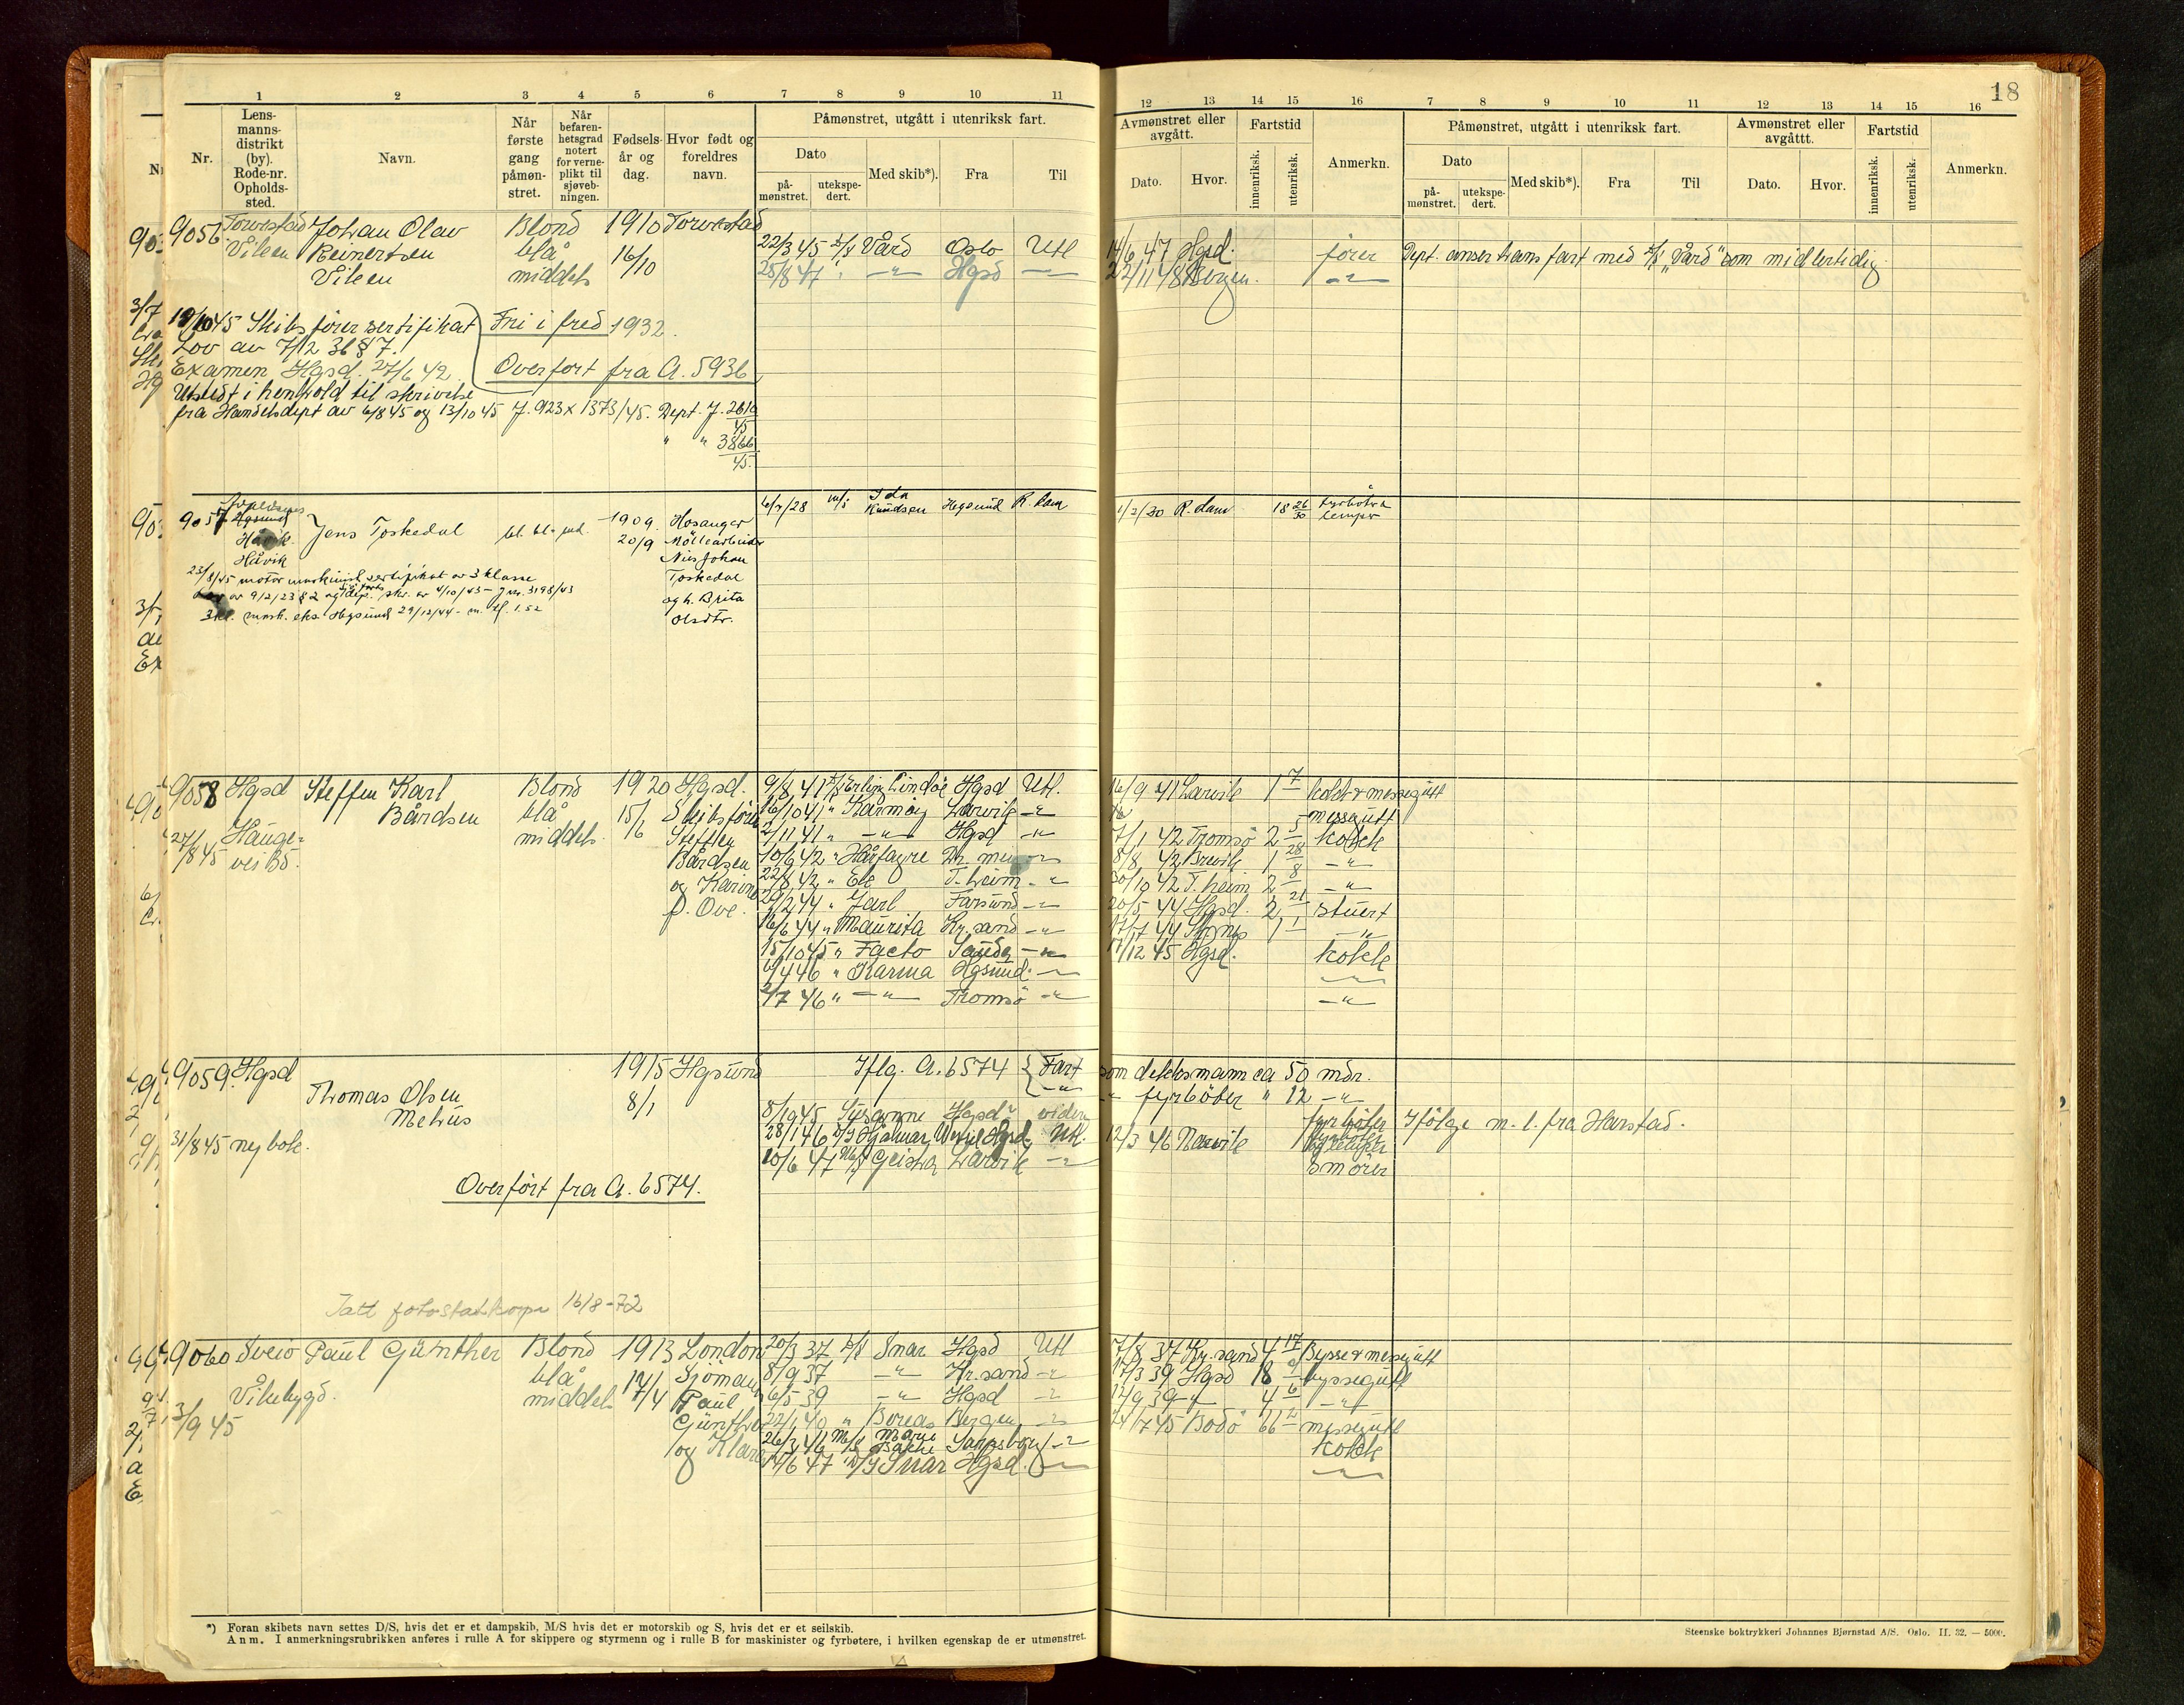 18
1 2 3 4 5 6 7 8 9 10 11
12 13 14 15 16 7 8 9 10 11 12 13 14 15 16
Nr.
Lens-
manns-
distrikt
(by).
Rode-nr.
Opholds-
sted.
Navn.
Når
første
gang
påmøn-
stret.
Når
befaren-
hetsgrad
notert
for verne-
plikt til
sjøveb-
ningen.
Fødsels-
år og
dag.
Hvor født og
foreldres
navn.
Påmønstret, utgått i utenriksk fart.
Dato
på-
mønstret.
utekspe-
dert.
Med skib*).
Fra
Til
Avmønstret eller
avgått.
Dato.
Hvor.
Fartstid
innenriksk.
utenriksk.
Anmerkn.
Påmønstret, utgått i utenriksk fart.
Dato
på-
mønstret.
utekspe-
dert.
Med skib*).
Fra
Til
Avmønstret eller
avgåttt.
Dato.
Hvor.
Fartstid
innenriksk.
utenriksk.
Anmerkn.
9056 Torvestad Johan Olav Blond 1910 Torvestad
Vileen Reinertsen blå 16/10
Vileen middels
22/3 45 D/S Vård Oslo Utl 14/6 47 Hgsd. fører Dept. anser hans fart med D/S "Vård" som midlertidig
25/8 47 " — " — Hgsd — 22/11 48 Bergen. — " —
19/10 45 Skibsførersertifikat Fri i fred 1932.
Lov av 7/12 36 § 7.
Examen Hgsd. 27/6 42 Overført fra A. 5936
Utstedt i henhold til skrivelse
fra Handelsdept av 6/8 45 og 13/10 45 J. 923 x 1373/45. Dept. J. 2610
45
" " 3866
45.
9057 Hgsund Jens Toskedal bl. bl. md. 1909 Hosanger
Håvik 20/9 Möllearbeider
Håvik Nils Johan
Toskedal
og h. Brita
Olsdtr.
6/7/28 m/s Ida Knudsen Hgsund R.dam 1/2/30 R.dam 18 26/30 fyrbøter
lemper
23/8/45 motormaskinist sertifikat av 3 klasse
Lov av 9/2/23 § 2 og dep. skr. av 4/10/43 - J nr. 3198/43
3 kl. mask. eks. Hgsund 29/12/44 - m.
9058 Hgsd Steffen Karl Blond 1920 Hgsd.
Bårdsen blå 15/6 Skibsfører
27/8 45 Hauge- middels Steffen
vei Bårdsen
og Karine
f. Ove.
9/8 41 D/S Erling Lindöe Hgsd Utl. 16/9 41 Larvik 1 7 kokk & messegutt
16/10 41 " Karmöy Larvik — " messegutt
2/11 41 " — " — Hgsd — " 7/1 42 Tromsö 2 5 kokk
10/6 42 " Hårfagre 8/8 42 Brevik 1 28 — " —
22/8 42 " Ek T.heim — " 30/10 42 T.heim 2 8 — " —
29/2 44 " Jarl Farsund — " 20/5 44 Hgsd. 2 21 Stuert
16/6 44 " Maurita Kr.sand — " 17/7 44 1 1 — " —
15/10 45 " Facto Sauda — " 17/12 45 Hgsd. kokk
4 46 " Karma Hgsund — " — " —
2/7 46 " — " — Tromsö — " — " —
9059 Hgsd Thomas Olsen 1915 Hgsund
Mehus 8/1
Iflg. A. 6574 { Fart som dekksmann ca 50 mdr.
— " — " fyrböter " 12 — " —
31/8 45 ny bok.
8/10 45 Susanne Hgsd videre fyrböter Ifölge m. l. fra Harstad.
28/1 46 D/S Hjalmar Wessel Hgsd Utl. 12/3 46 Narvik fyrböter
og lemper
10/6 47 M/S Geisha Larvik — " Smörer
Overført fra A. 6574.
Tatt fotostatkopi 16/8-72
9060 Sveio Paul Günther Blond 1913 London
Vikebygd. blå 17/4 Sjömann
3/9 45 middels Paul
Günther
og Klara
20/3 37 D/S Snar Hgsd Utl 7/8 37 Kr.sand 4 17 Bysse & messegutt
8/9 37 — " — Kr.sand — " 17/3 39 Hgsd 18 9 byssegutt
6/5 39 — " — Hgsd — " 12/9 39 — " — 4 6 — " —
22/1 40 " Boreas Bergen — " 24/7 45 Bodö 66 2 messegutt
26/3 46 M/S Marie Bakke Sarpsborg — " kokk
14/6 47 D/S Snar Hgsd. — " — " —
*) Foran skibets navn settes D/S, hvis det er et dampskib, M/S hvis det er motorskib og S, hvis det er et seilskib.
Anm. I anmerkningsrubrikken anføres i rulle A for skippere og styrmenn og i rulle B for maskinister og fyrbøtere, i hvilken egenskap de er utmønstret.
Steenske boktrykkeri Johannes Bjørnstad A/S. Oslo. II. 32. — 5000.